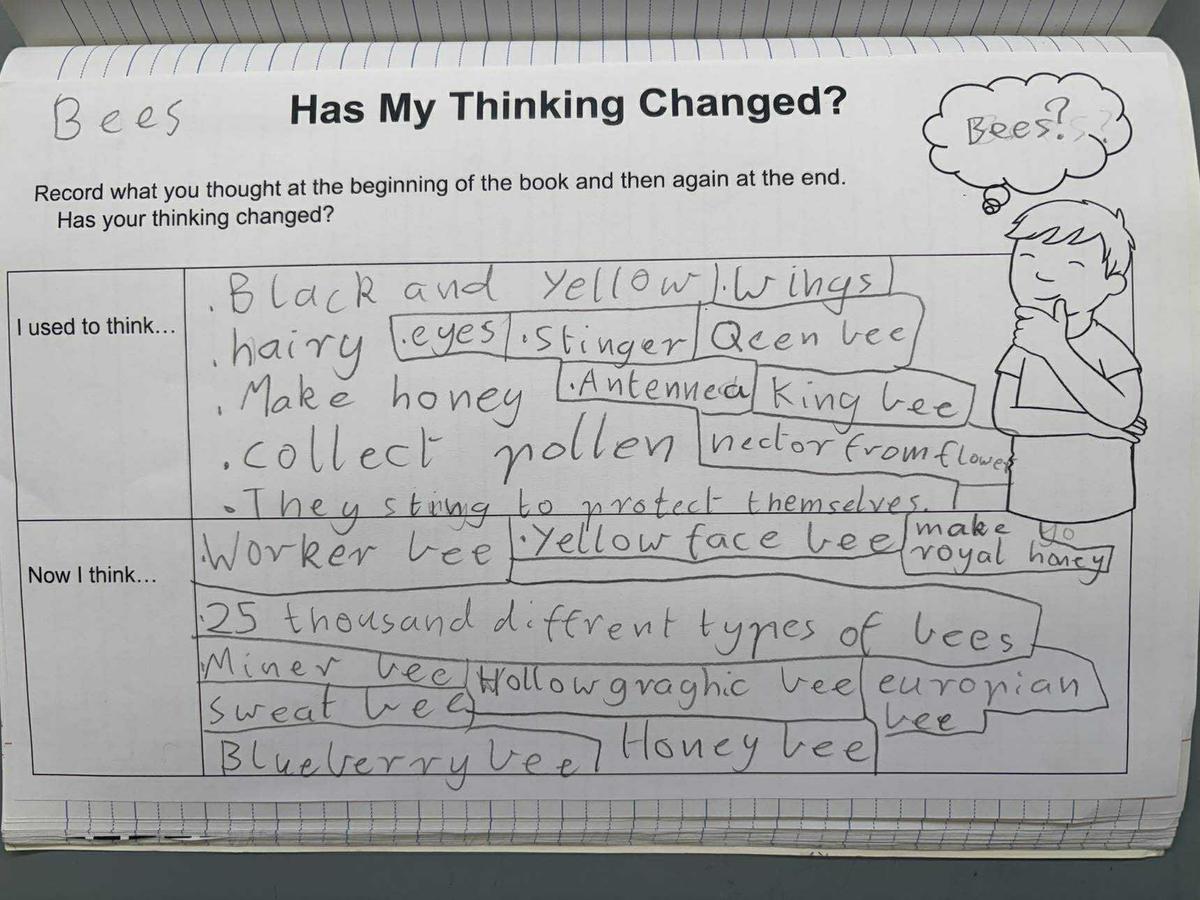 Bees
Has My Thinking Changed?
Bees?
Record what you thought at the beginning of the book and then again at the end.
Has your thinking changed?
I used to think...
. Black and Yellow . Wings
. hairy . eyes . Stinger Qeen bee
. Make honey . Antennea King bee
. collect pollen nector from flower
. They sting to protect themselves.
Now I think...
. Worker bee . Yellow face bee make royal honey
. 25 thousand diffrent types of bees
. Miner bee Hollowgraghic bee europian bee
Sweat bee
Blueberry bee Honey bee